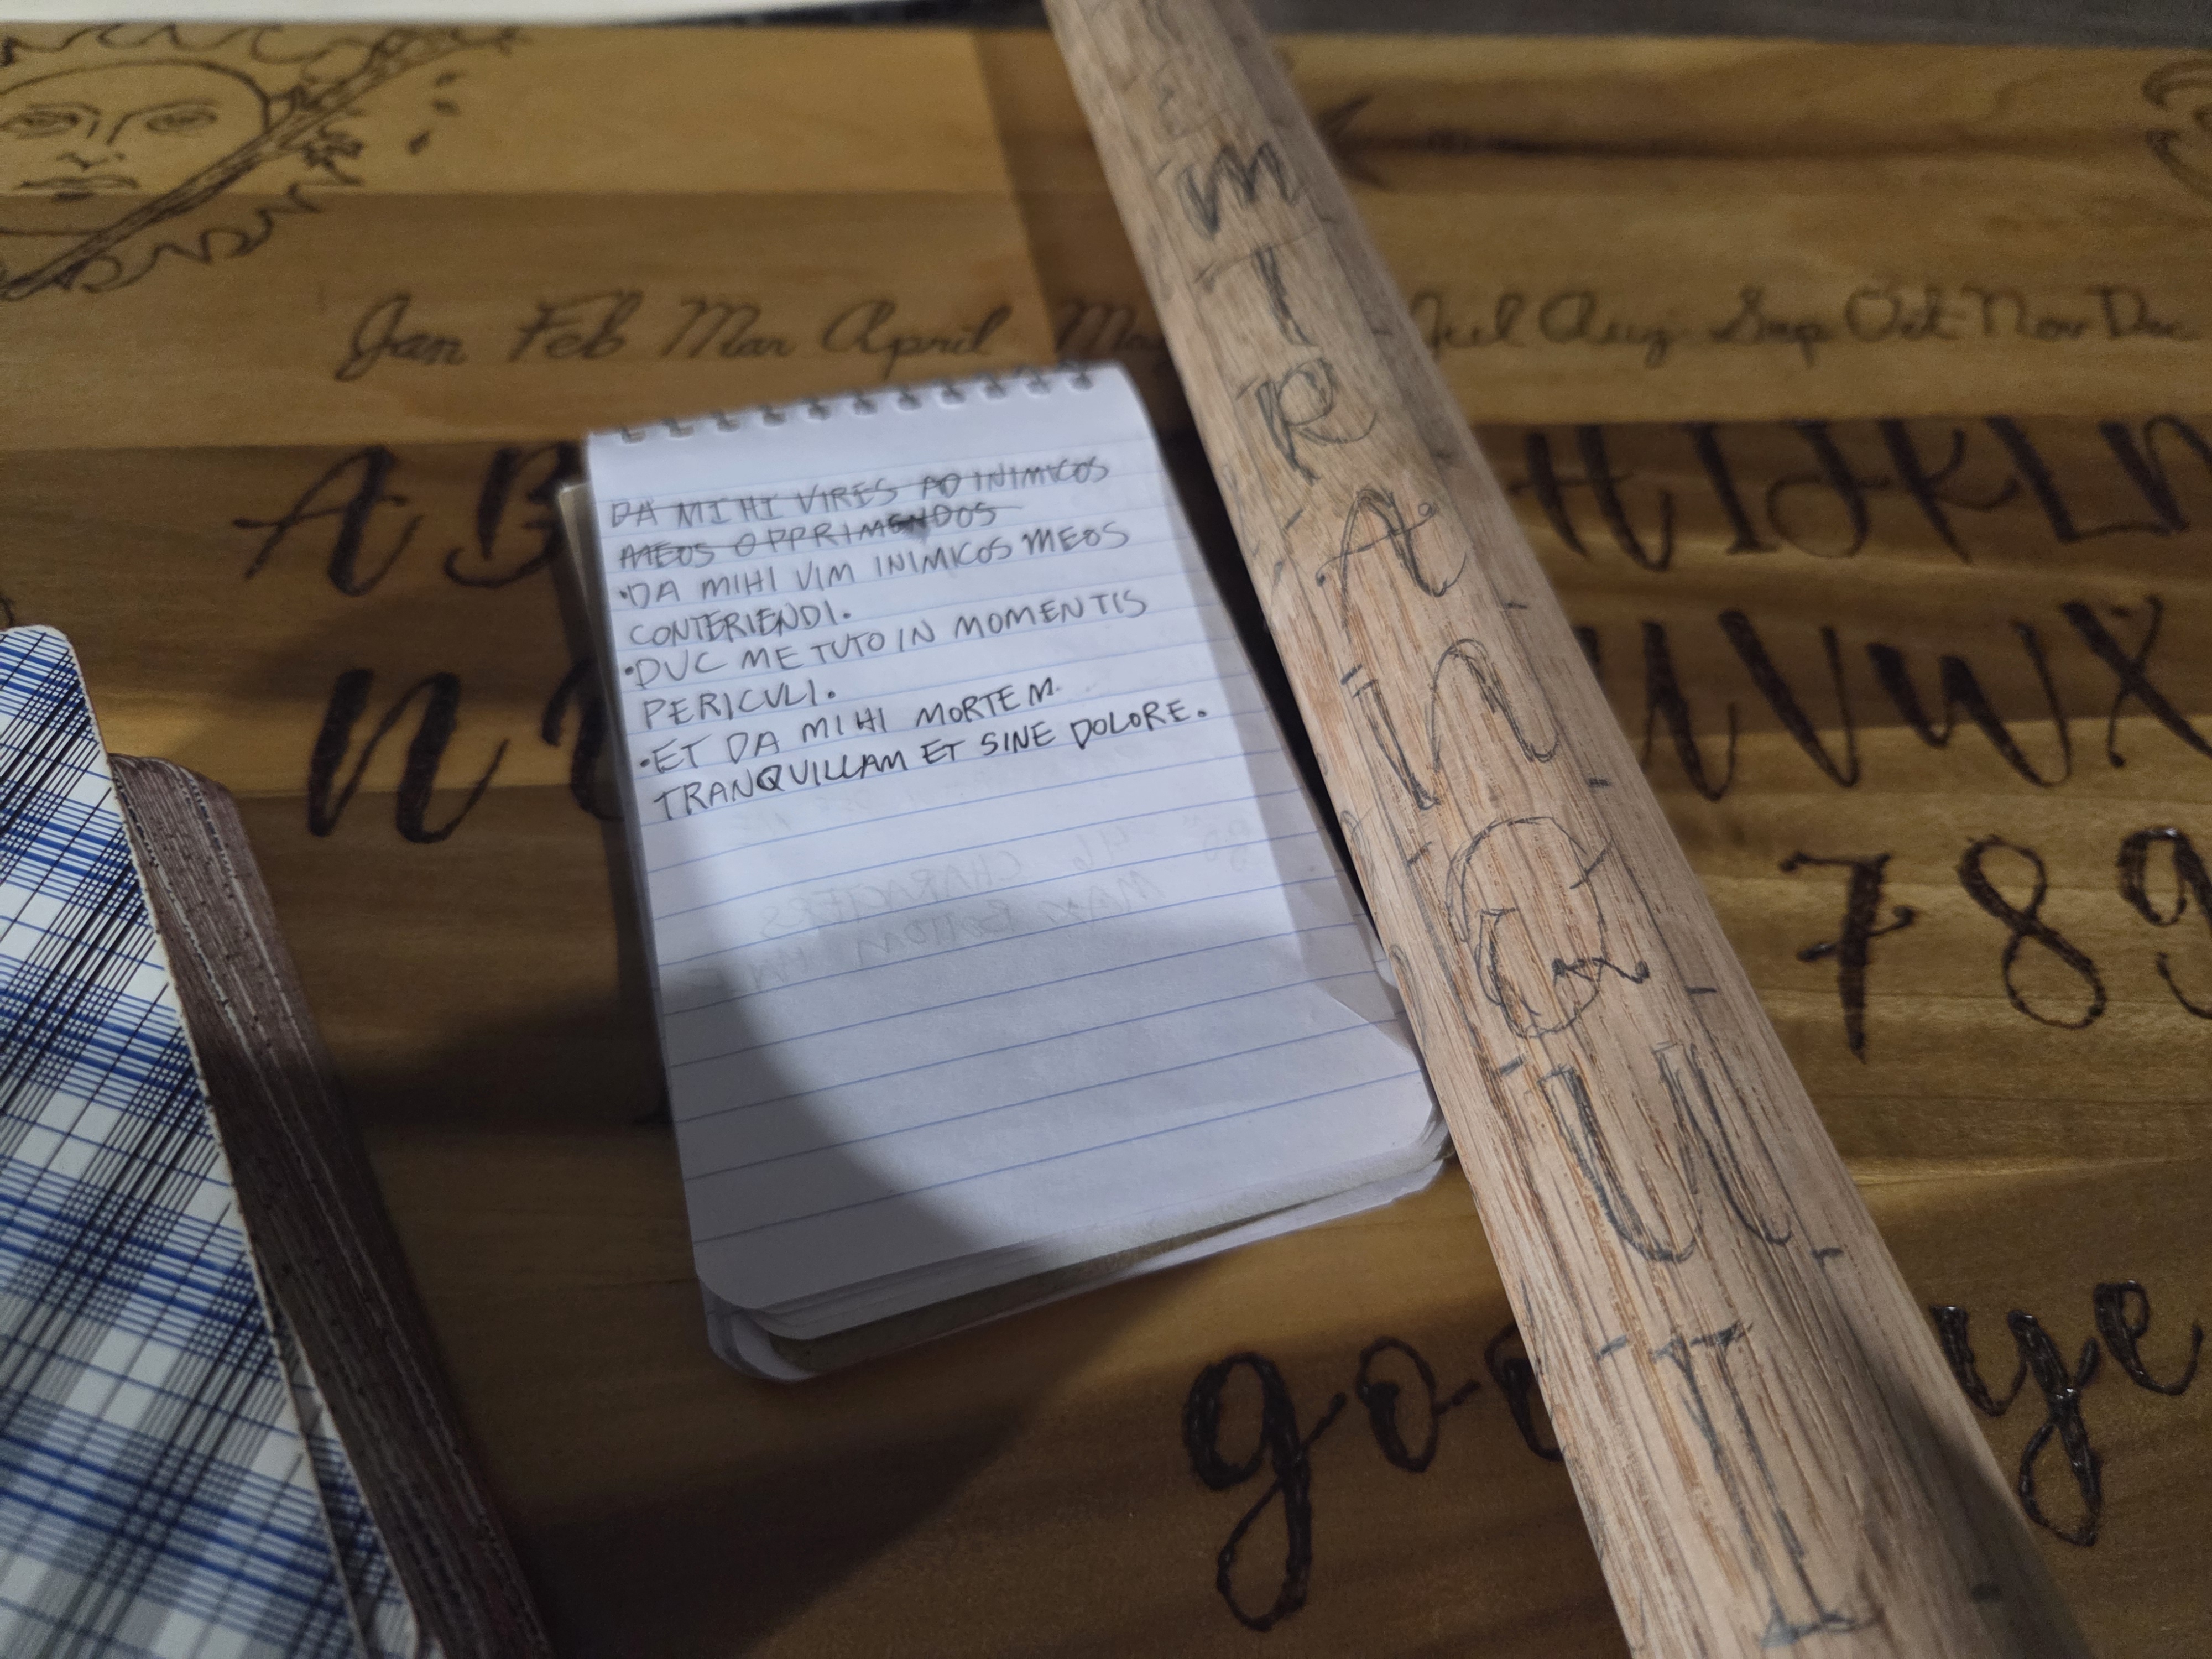 Jan Feb Mar April May Jul Aug Sep Oct Nov Dec
A B H I J K L
N U V W X
7 8 9
goo ye
DA MIHI VIRES AD INIMICOS
MEOS OPPRIMENDOS
•DA MIHI VIM INIMICOS MEOS
CONTERIENDI.
•DUC ME TUTO IN MOMENTIS
PERICULI.
•ET DA MIHI MORTEM
TRANQUILLAM ET SINE DOLORE.
E
M
T
R
A
N
Q
U
I